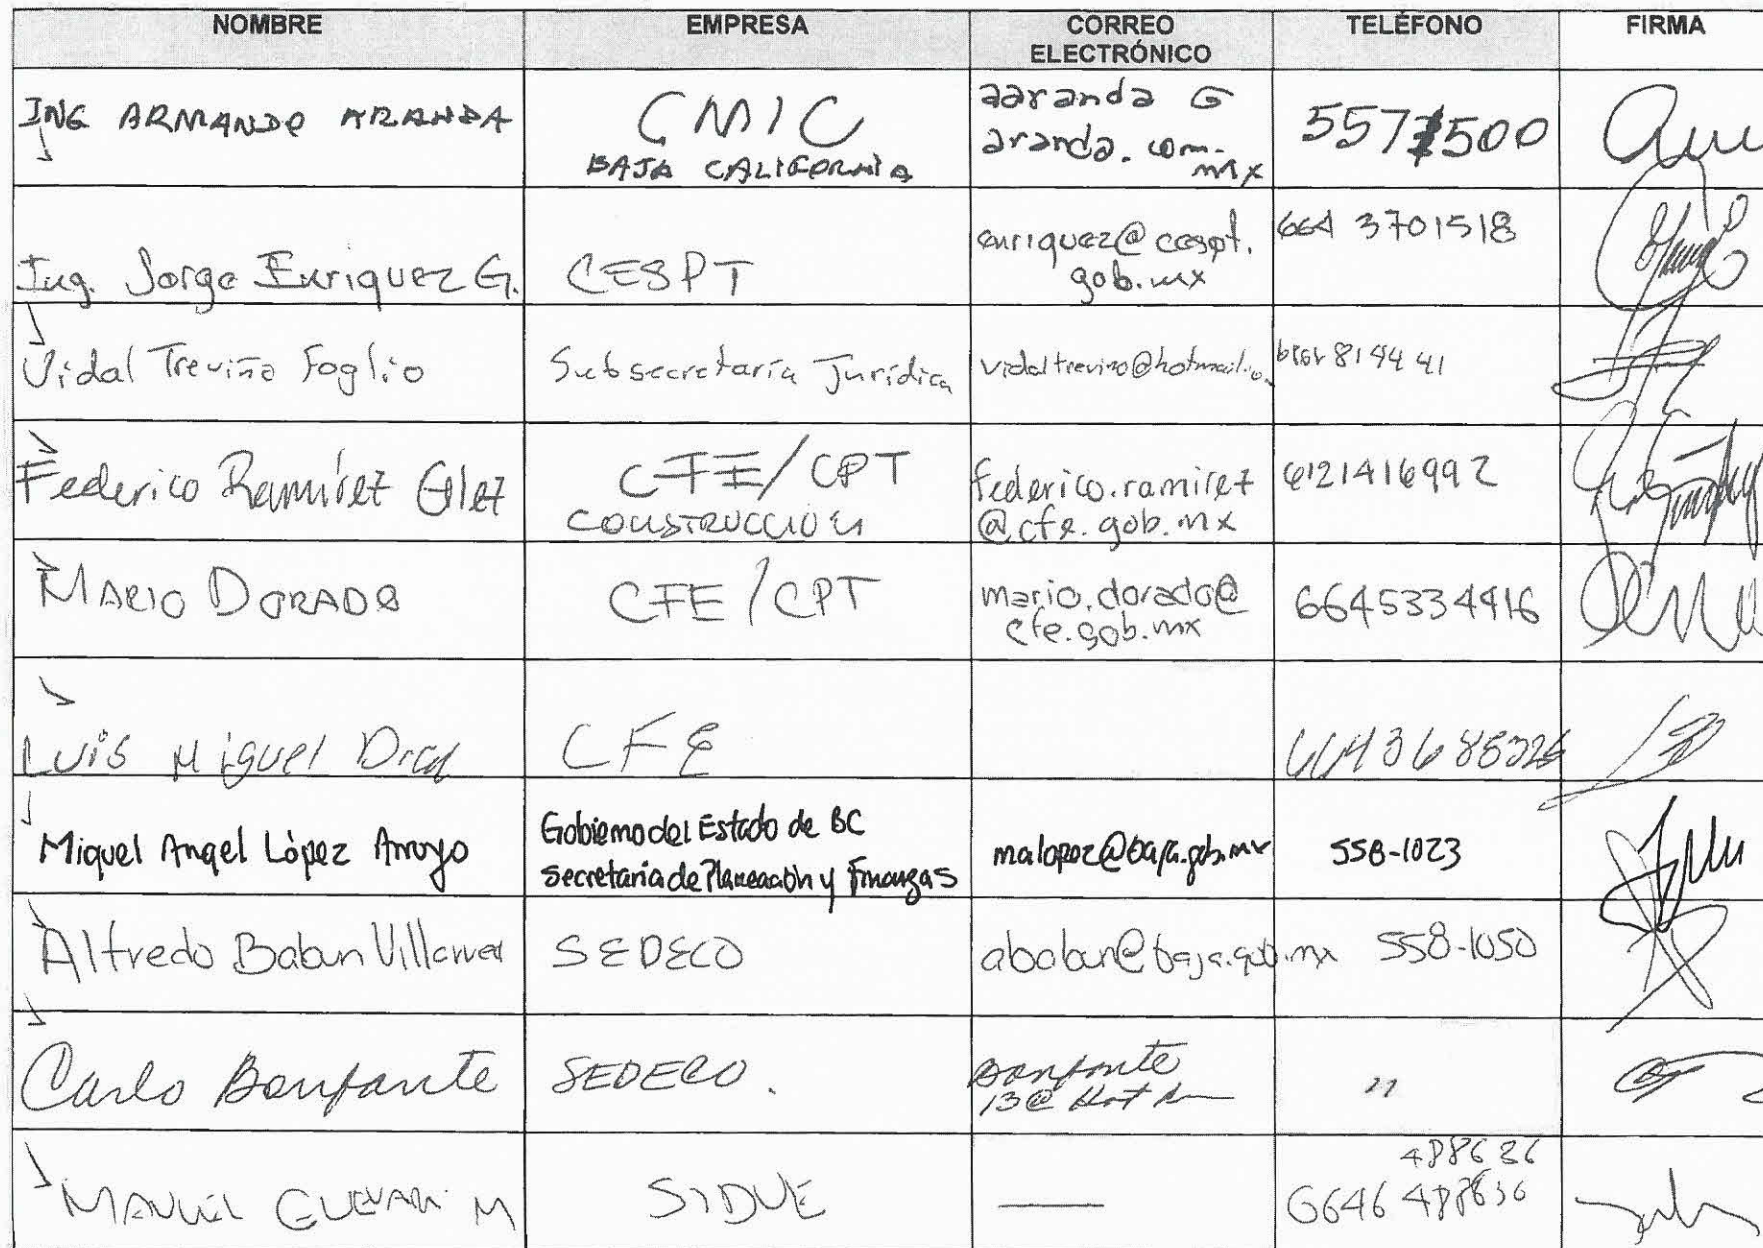 NOMBRE EMPRESA CORREO ELECTRÓNICO TELÉFONO FIRMA
ING ARMANDO ARANDA
CMIC
BAJA CALIFORNIA
aaranda @
aranda.com.
mx
5571500
Ing. Jorge Enriquez G.
CESPT
enriquez@cespt.
gob.mx
664 3701518
Vidal Treviño Foglio
Subsecretaría Jurídica
vidaltrevino@hotmail.
81944 41
Federico Ramírez Glez
CFE/CPT
CONSTRUCCIÓN
federico.ramirez
@cfe.gob.mx
6121416992
MARIO DORADO
CFE/CPT
mario.dorado@
cfe.gob.mx
6645334416
Luis Miguel
CFE
Miguel Angel López Arroyo
Gobierno del Estado de BC
Secretaria de Planeación y Finanzas
malopez@baja.gob.mx
558-1023
Alfredo Babun Villarreal
SEDECO
ababun@baja.gob.mx
558-1050
Carlo Bonfante
SEDECO.
Bonfante
13@
"
MANUEL GUEVARA M
SIDUE
—